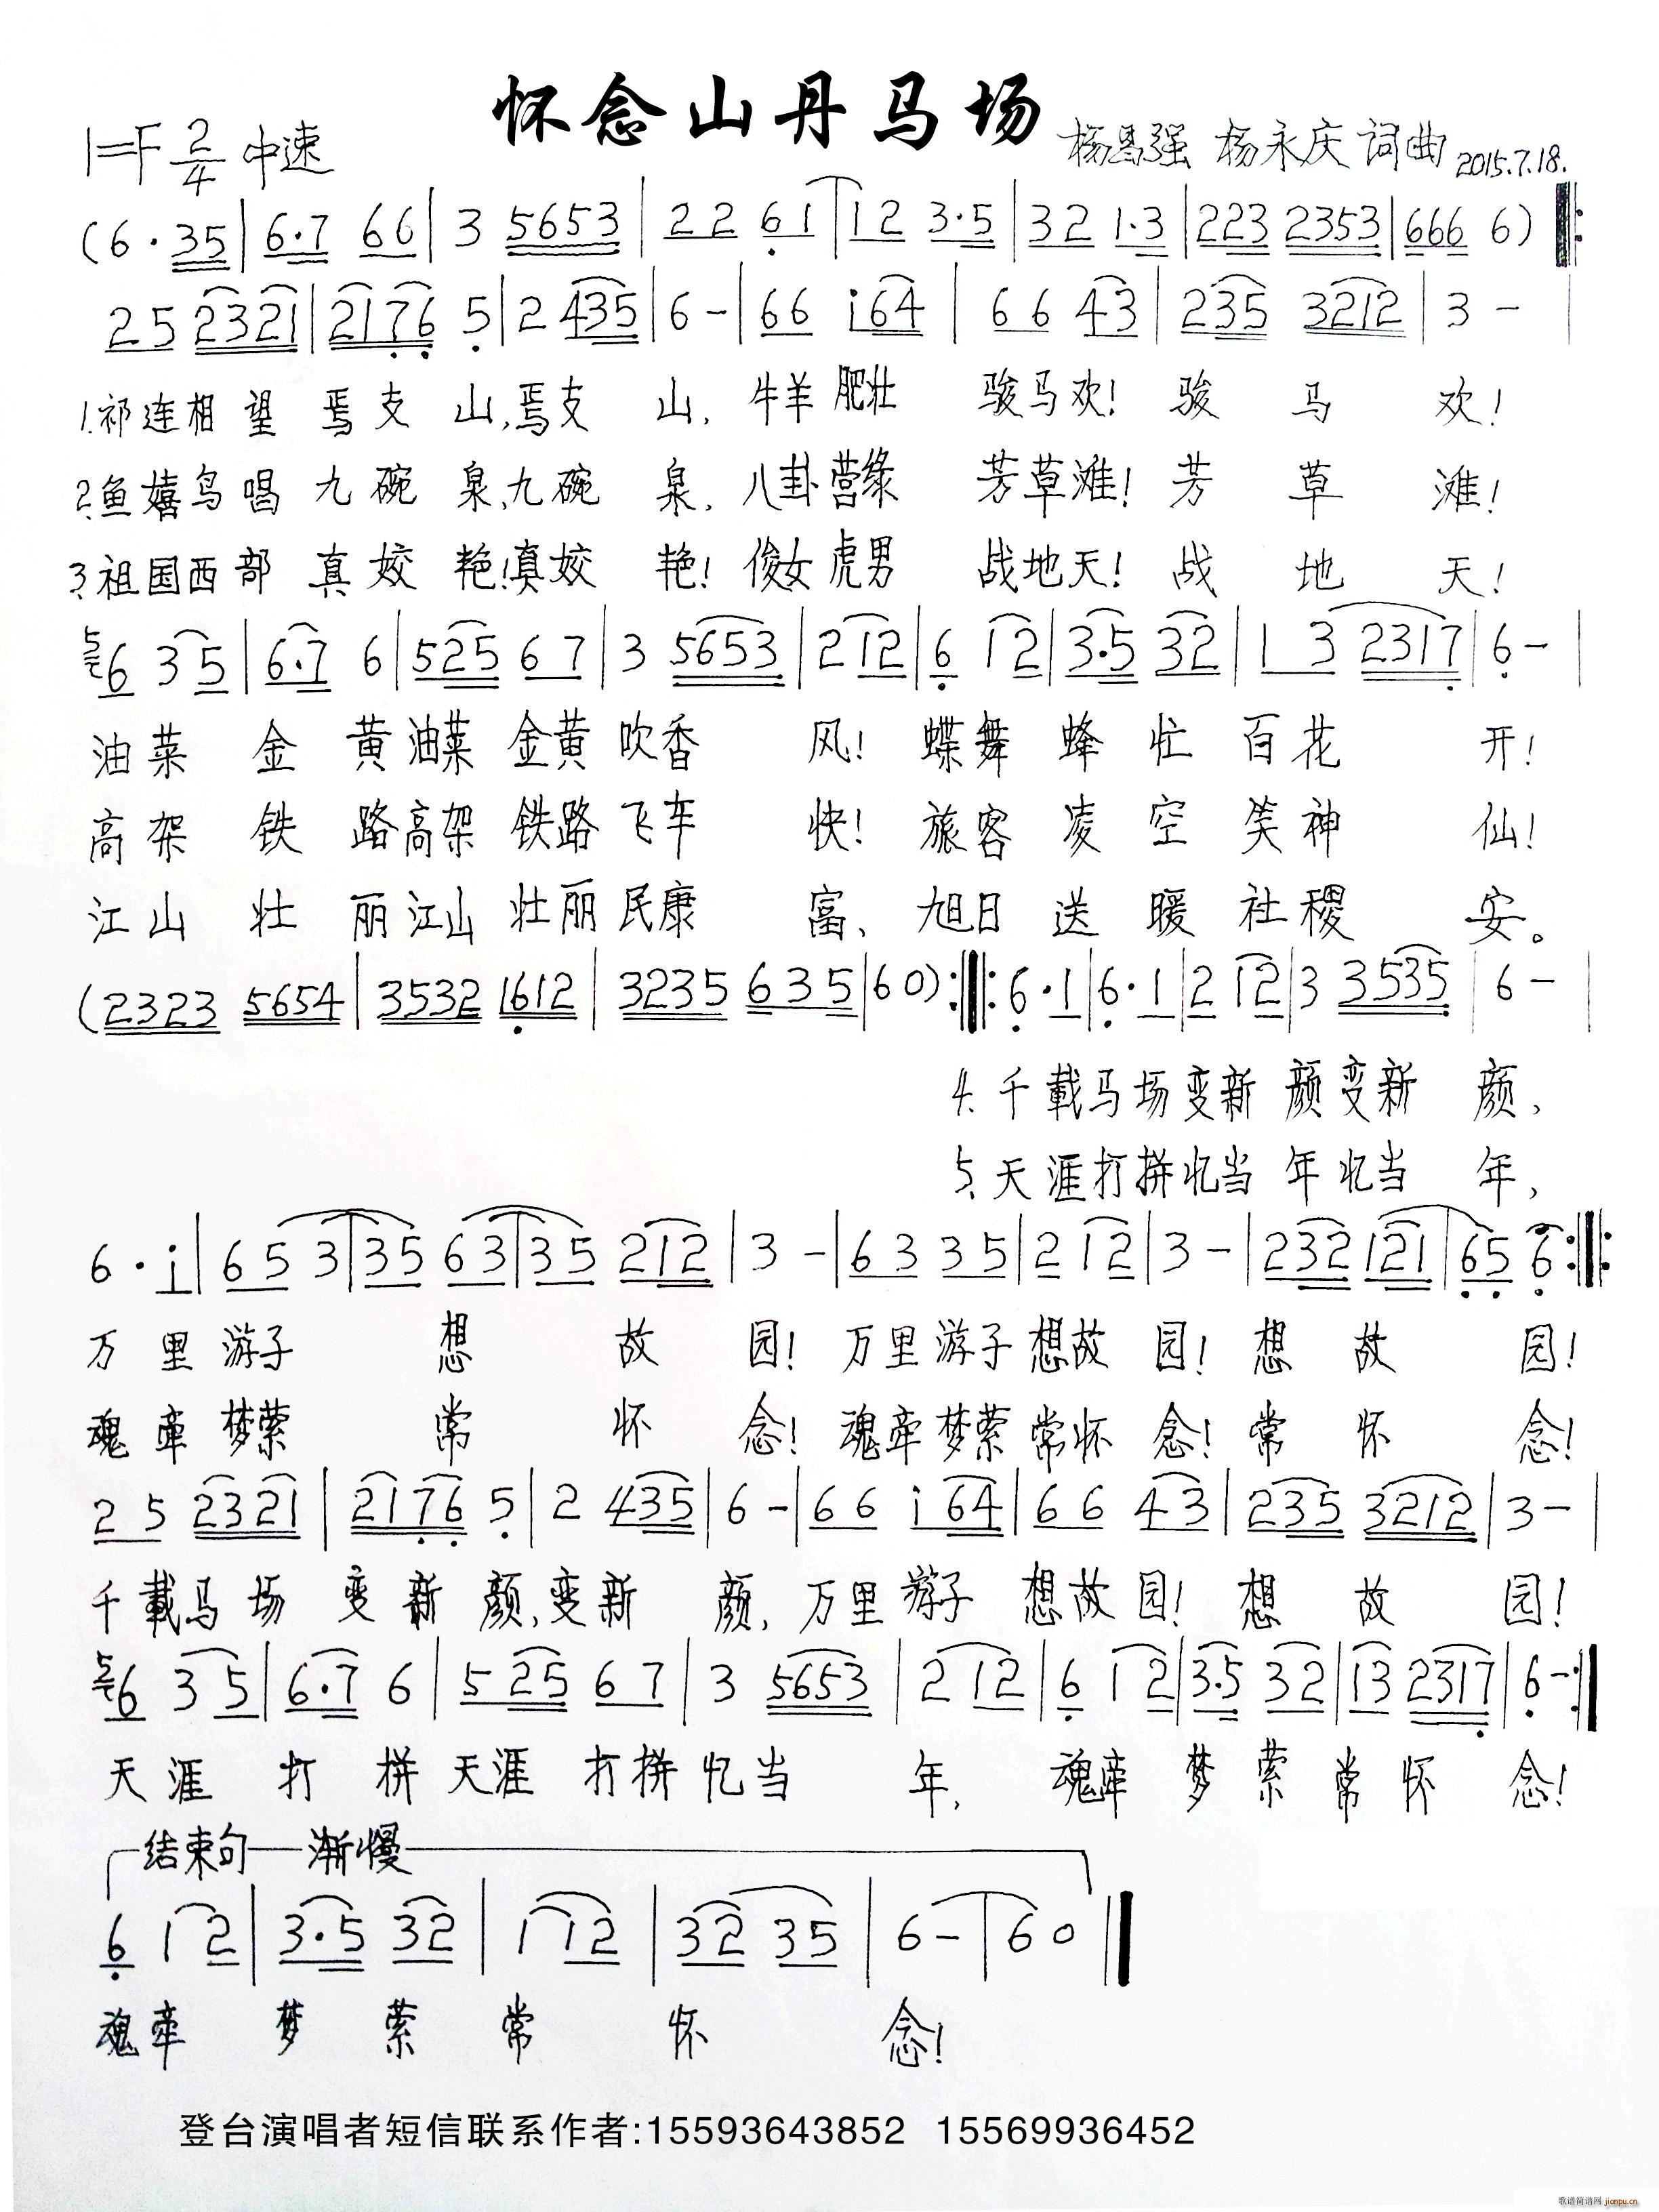 怀念山丹马场
1=F 2/4 中速
杨昌强 杨永庆 词曲 2015.7.18.
(6·35|6·7 66|3 5653|22 61|12 3·5|32 1·3|223 2353|666 6)‖:
25 2321|2176 5|2 435|6-|66 i64|66 43|235 3212|3-|
1.祁连相望焉支山,焉支山,牛羊肥壮骏马欢!骏马欢!
2.鱼嬉鸟唱九碗泉,九碗泉,八卦营缘芳草滩!芳草滩!
3.祖国西部真姣艳!真姣艳!俊女虎男战地天!战地天!
5 6 35|6·7 6|525 67|3 5653|212|6 12|3·5 32|13 2317|6-|
油菜金黄油菜金黄吹香风!蝶舞蜂忙百花开!
高架铁路高架铁路飞车快!旅客凌空笑神仙!
江山壮丽江山壮丽民康富、旭日送暖社稷安。
(2323 5654|3532 1612|3235 635|60):‖:6·1|6·1|2 12|3 3535|6-|
4.千載马场变新颜变新颜,
5.天涯打拼忆当年忆当年,
6·i|65 3|35 63|35 212|3-|63 35|2 12|3-|232 121|65 6:‖:
万里游子想故园!万里游子想故园!想故园!
魂牵梦萦常怀念!魂牵梦萦常怀念!常怀念!
25 2321|2176 5|2 435|6-|66 i64|66 43|235 3212|3-|
千載马场变新颜,变新颜,万里游子想故园!想故园!
5 6 35|6·7 6|525 67|3 5653|2 12|6 12|3·5 32|13 2317|6-:‖
天涯打拼天涯打拼忆当年,魂牵梦萦常怀念!
结束句—渐慢
6 12|3·5 32|1 12|32 35|6-|60‖
魂牵梦萦常怀念!
登台演唱者短信联系作者:15593643852 15569936452
歌谱简谱网
jianpu.cn